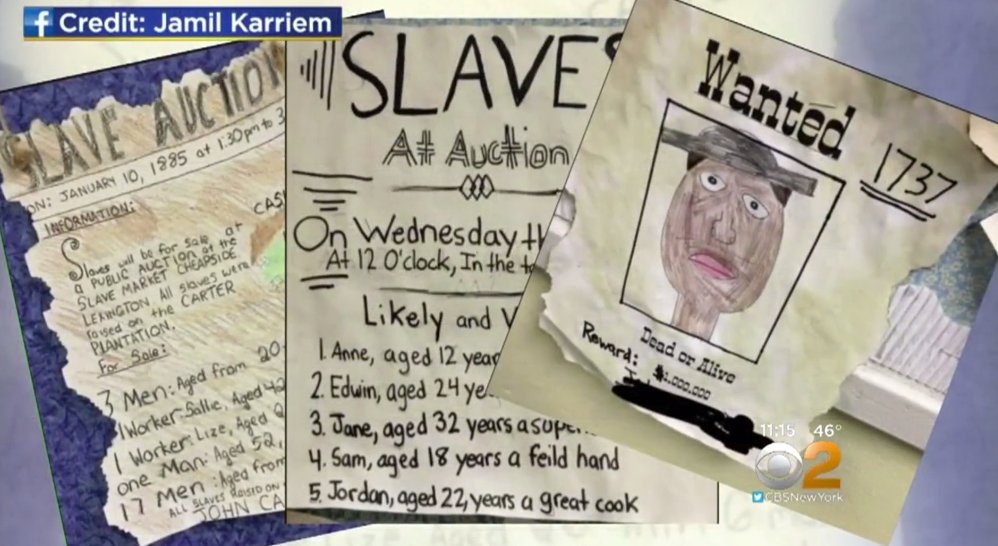 f Credit: Jamil Karriem
SLAVE AUCTION
ON: JANUARY 10, 1885 at 1:30pm to 3
INFORMATION:
CAS
Slaves will be for sale at
a PUBLIC AUCTION at the
SLAVE MARKET CHEAPSIDE
LEXINGTON. All slaves were
raised on the CARTER
PLANTATION.
For Sale:
3 Men: Aged from 20
1 Worker: Sallie, Aged 42
1 Worker: Lize, Aged
one Man: Aged 52,
17 Men: Aged from
ALL SLAVES RAISED ON
JOHN CA
SLAVES
At Auction
On Wednesday th
At 12 O'clock, In the t
Likely and V
1. Anne, aged 12 year
2 Edwin, aged 24 ye
3. Jane, aged 32 years a super
4. Sam, aged 18 years a feild hand
5. Jordan, aged 22, years a great cook
Wanted
1737
Dead or Alive
Reward: $1,000,000
11:15 46°
2
CBSNewYork